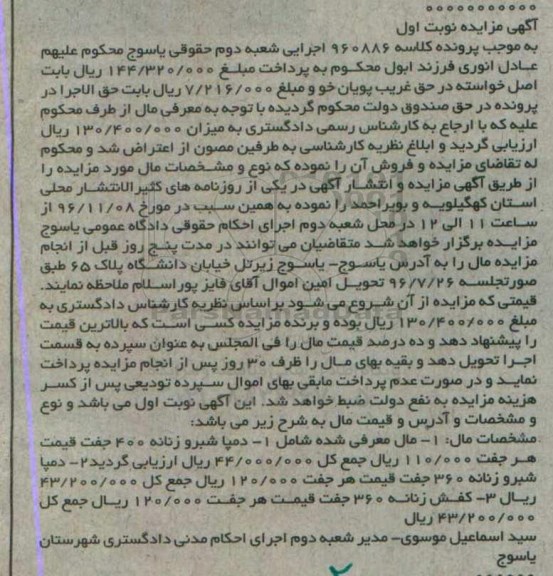 آگهی مزایده نوبت اول
به موجب پرونده کلاسه ۹۶۰۸۸۶ اجرایی شعبه دوم حقوقی یاسوج محکوم علیهم
عادل انوری فرزند ابول محکوم به پرداخت مبلغ ۱۴۴/۳۲۰/۰۰۰ ریال بابت
اصل خواسته در حق غریب پویان خو و مبلغ ۷/۲۱۶/۰۰۰ ریال بابت حق الاجرا در
پرونده در حق صندوق دولت محکوم گردیده با توجه به معرفی مال از طرف محکوم
علیه که با ارجاع به کارشناس رسمی دادگستری به میزان ۱۳۰/۴۰۰/۰۰۰ ریال
ارزیابی گردید و ابلاغ نظریه کارشناسی به طرفین مصون از اعتراض شد و محکوم
له تقاضای مزایده و فروش آن را نموده که نوع و مشخصات مال مورد مزایده را
از طریق آگهی مزایده و انتشار آگهی در یکی از روزنامه های کثیرالانتشار محلی
استان کهگیلویه و بویراحمد را نموده به همین سبب در مورخ ۹۶/۱۱/۰۸ از
ساعت ۱۱ الی ۱۲ در محل شعبه دوم اجرای احکام حقوقی دادگاه عمومی یاسوج
مزایده برگزار خواهد شد متقاضیان می توانند در مدت پنج روز قبل از انجام
مزایده مال را به آدرس یاسوج- یاسوج زیرتل خیابان دانشگاه پلاک ۶۵ طبق
صورتجلسه ۹۶/۷/۲۶ تحویل امین اموال آقای فایز پور اسلام ملاحظه نمایند.
قیمتی که مزایده از آن شروع می شود براساس نظریه کارشناس دادگستری به
مبلغ ۱۳۰/۴۰۰/۰۰۰ ریال بوده و برنده مزایده کسی است که بالاترین قیمت
را پیشنهاد دهد و ده درصد قیمت مال را فی المجلس به عنوان سپرده به قسمت
اجرا تحویل دهد و بقیه بهای مال را ظرف ۳۰ روز پس از انجام مزایده پرداخت
نماید و در صورت عدم پرداخت مابقی بهای اموال سپرده تودیعی پس از کسر
هزینه مزایده به نفع دولت ضبط خواهد شد. این آگهی نوبت اول می باشد و نوع
و مشخصات و آدرس و قیمت مال به شرح زیر می باشد:
مشخصات مال: ۱- مال معرفی شده شامل ۱- دمپا شبرو زنانه ۴۰۰ جفت قیمت
هر جفت ۱۱۰/۰۰۰ ریال جمع کل ۴۴/۰۰۰/۰۰۰ ریال ارزیابی گردید ۲- دمپا
شبرو زنانه ۳۶۰ جفت قیمت هر جفت ۱۲۰/۰۰۰ ریال جمع کل ۴۳/۲۰۰/۰۰۰
ریال ۳- کفش زنانه ۳۶۰ جفت قیمت هر جفت ۱۲۰/۰۰۰ ریال جمع کل
۴۳/۲۰۰/۰۰۰ ریال
سید اسماعیل موسوی- مدیر شعبه دوم اجرای احکام مدنی دادگستری شهرستان
یاسوج